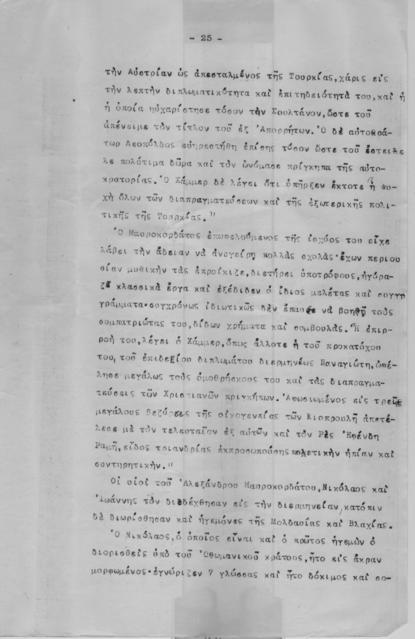 - 25 -
τὴν Αὐστρίαν ὡς ἀπεσταλμένος τῆς Τουρκίας, χάρις εἰς
τὴν λεπτὴν διπλωματικότητα καὶ ἐπιτηδειότητά του, καὶ ἡ
ἡ ὁποία ηὐχαρίστησε τόσον τὸν Σουλτάνον, ὥστε τοῦ
ἀπένειμε τὸν τίτλον τοῦ ἐξ Ἀπορρήτων. Ὁ δὲ αὐτοκρά-
τωρ Λεοπόλδος εὐηρεστήθη ἐπίσης τόσον ὥστε τοῦ ἔστειλε
λε πολύτιμα δῶρα καὶ τὸν ὠνόμασε πρίγκηπα τῆς αὐτο-
κρατορίας. Ὁ Χάμμερ δὲ λέγει ὅτι ὑπῆρξεν ἔκτοτε ἡ ψυ-
χὴ ὅλων τῶν διαπραγματεύσεων καὶ τῆς ἐξωτερικῆς πολι-
τικῆς τῆς Τουρκίας."
Ὁ Μαυροκορδᾶτος ἐπωφελούμενος τῆς ἰσχύος του εἶχε
λάβει τὴν ἄδειαν νὰ ἀνοίγῃ πολλὰς σχολάς· ἔχων περιου
σίαν μυθικὴν τὰς ἐπροίκιζε, διετήρει ὑποτρόφους, ἠγόρα-
ζε κλασσικὰ ἔργα καὶ ἐξέδιδεν ὁ ἴδιος μελέτας καὶ συγγρ
γράμματα· συγχρόνως ἰδιωτικῶς δὲν ἔπαυσε νὰ βοηθῇ τοὺς
συμπατριώτας του, δίδων χρήματα καὶ συμβουλάς. Ἡ ἐπιρ-
ροή του, λέγει ὁ Χάμμερ, ὅπως ἄλλοτε ἡ τοῦ προκατόχου
του, τοῦ ἐπιδεξίου διπλωμάτου διερμηνέως Παναγιώτη, ὠφέ-
λησε μεγάλως τοὺς ὁμοθρήσκους του καὶ τὰς διαπραγμα-
τεύσεις τῶν Χριστιανῶν πριγκήπων. Ἀφωσιωμένος εἰς τρεῖς
μεγάλους Βεζύρας τῆς οἰκογενείας τῶν Κιοπρουλῆ ἀπετέ-
λεσε μὲ τὸν τελευταῖον ἐξ αὐτῶν καὶ τὸν Ρεῒς Ἐφένδη
Ραμῆ, εἶδος τριανδρίας ἐκπροσωπούσης πολιτικὴν ἠπίαν καὶ
συντηρητικήν."
Οἱ υἱοὶ τοῦ Ἀλεξάνδρου Μαυροκορδάτου, Νικόλαος καὶ
Ἰωάννης τὸν διεδέχθησαν εἰς τὴν διερμηνείαν, κατόπιν
δὲ διωρίσθησαν καὶ ἡγεμόνες τῆς Μολδαυίας καὶ Βλαχίας.
Ὁ Νικόλαος, ὁ ὁποῖος εἶναι καὶ ὁ πρῶτος ἡγεμὼν ὁ
διορισθεὶς ὑπὸ τοῦ Ὀθωμανικοῦ κράτους, ἦτο εἰς ἄκραν
μορφωμένος· ἐγνώριζεν 7 γλώσσας καὶ ἦτο δόκιμος καὶ σο-